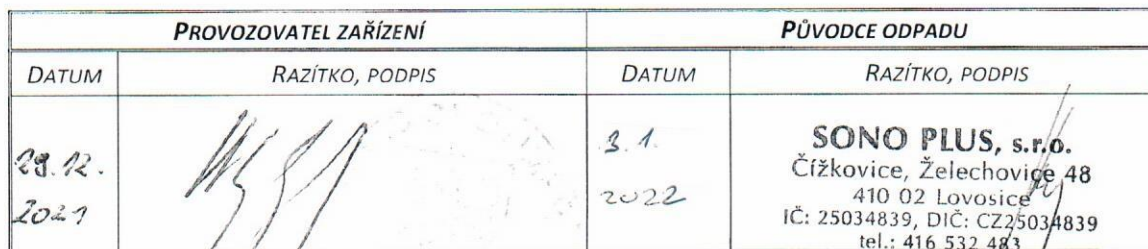 PROVOZOVATEL ZAŘÍZENÍ
PŮVODCE ODPADU
DATUM
RAZÍTKO, PODPIS
DATUM
RAZÍTKO, PODPIS
29.12.
2021
3.1.
2022
SONO PLUS, s.r.o.
Čížkovice, Želechovice 48
410 02 Lovosice
IČ: 25034839, DIČ: CZ25034839
tel.: 416 532 483